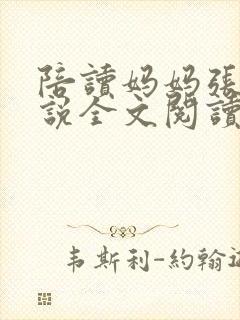 陪讀妈妈張
説全文閱讀
韦斯利-約翰